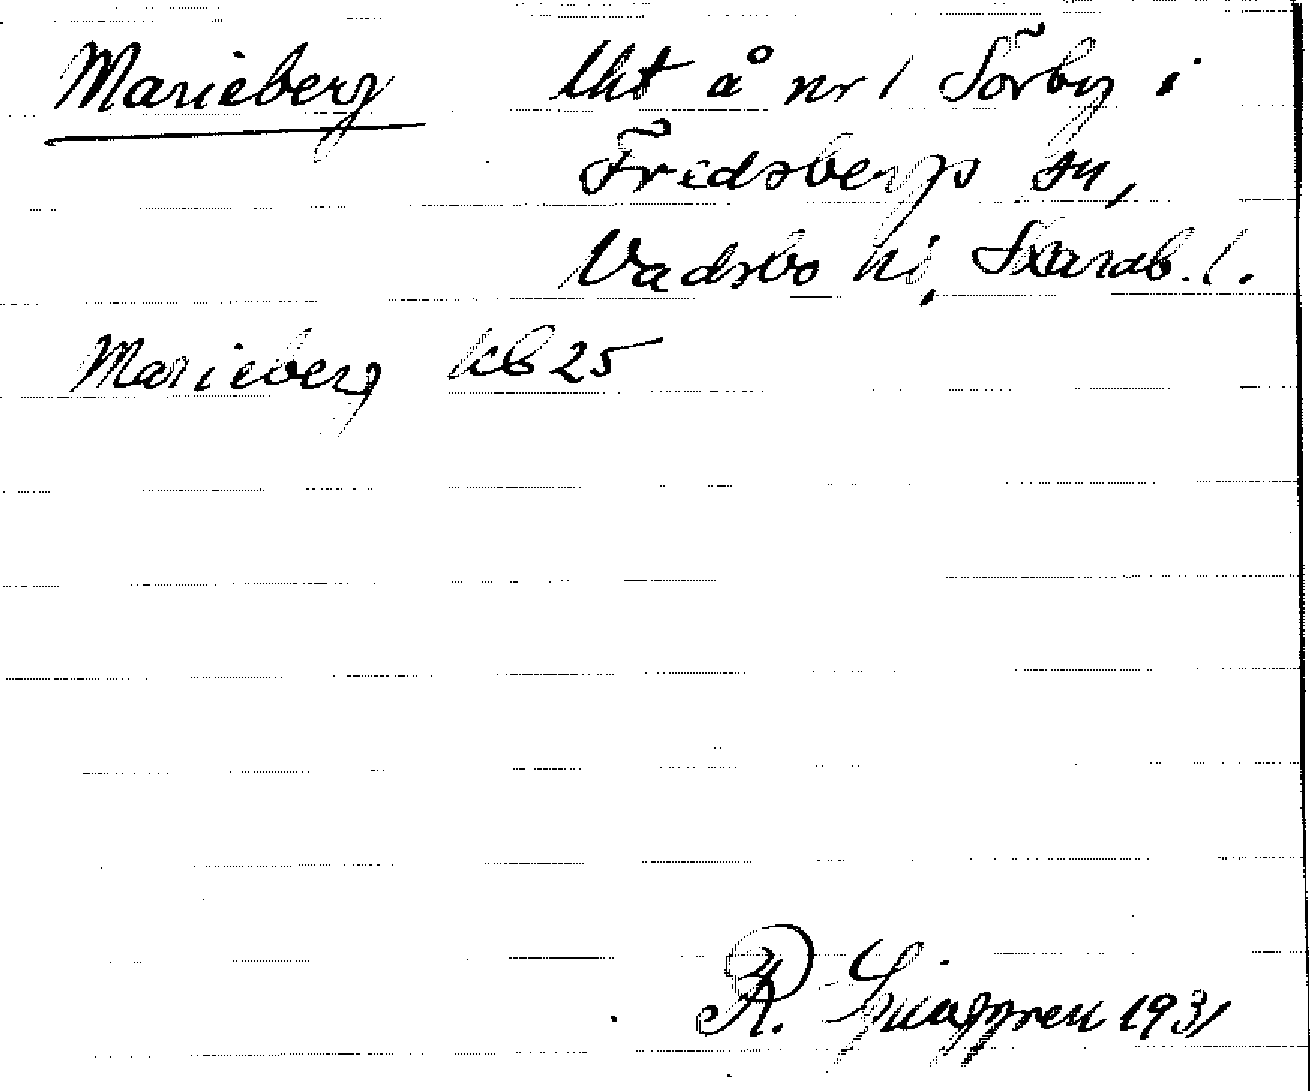 Marieberg Lht å nr 1 Sörby i
Fredsbergs sn,
Vadsbo hd, Skarab. l.
Marieberg kb 25
R. Ljunggren 1931